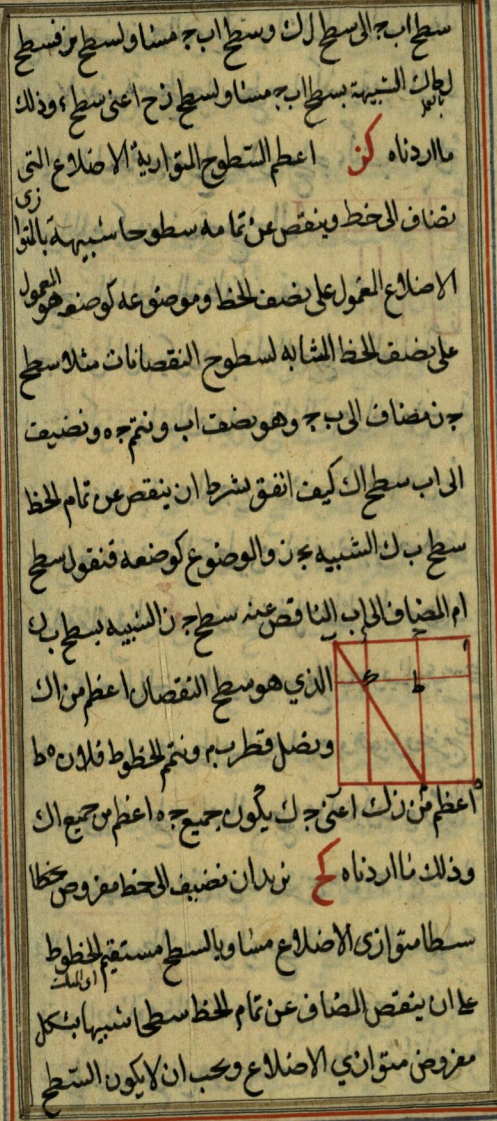 سطح اب ج الى سطح ل ك وسطح اب ج مساو لسطح م ن فسطح
ل ك الشبيهة بسطح اب ج مساو لسطح ز ح اعنى سطح ء وذلك
ما اردناه كز اعظم السطوح المتوازية الاضلاع التى
تضاف الى خط وينقص عن تمامه سطوحا شبيهة بالمتوازى
الاضلاع المعمول على نصف الخط وموضوعه كوضعه هو المعمول
على نصف الخط المشابه لسطوح النقصانات مثلا سطح
ج ن مضاف الى ب ج وهو نصف اب ونتم ج ه ونضيف
الى اب سطح اك كيف اتفق بشرط ان ينقص عن تمام الخط
سطح ب ك الشبيه ب ج ن والوضوع كوضعه فنقول سطح
ام المضاف الى اب الناقص عنه سطح ج ن الشبيه بسطح ب ك
الذي هو سطح النقصان اعظم من اك
ونصل قطر ب م ونتم الخطوط فلان ه ط
اعظم من ز ك اعنى ج ك يكون جميع ج ه اعظم من جميع اك
وذلك ما اردناه كح نريد ان نضيف الى خط مفروض
سطحا متوازى الاضلاع مساويا لسطح مستقيم الخطوط
على ان ينقص المضاف عن تمام الخط سطحا شبيها بشكل
مفروض متوازي الاضلاع ويجب ان لا يكون السطح